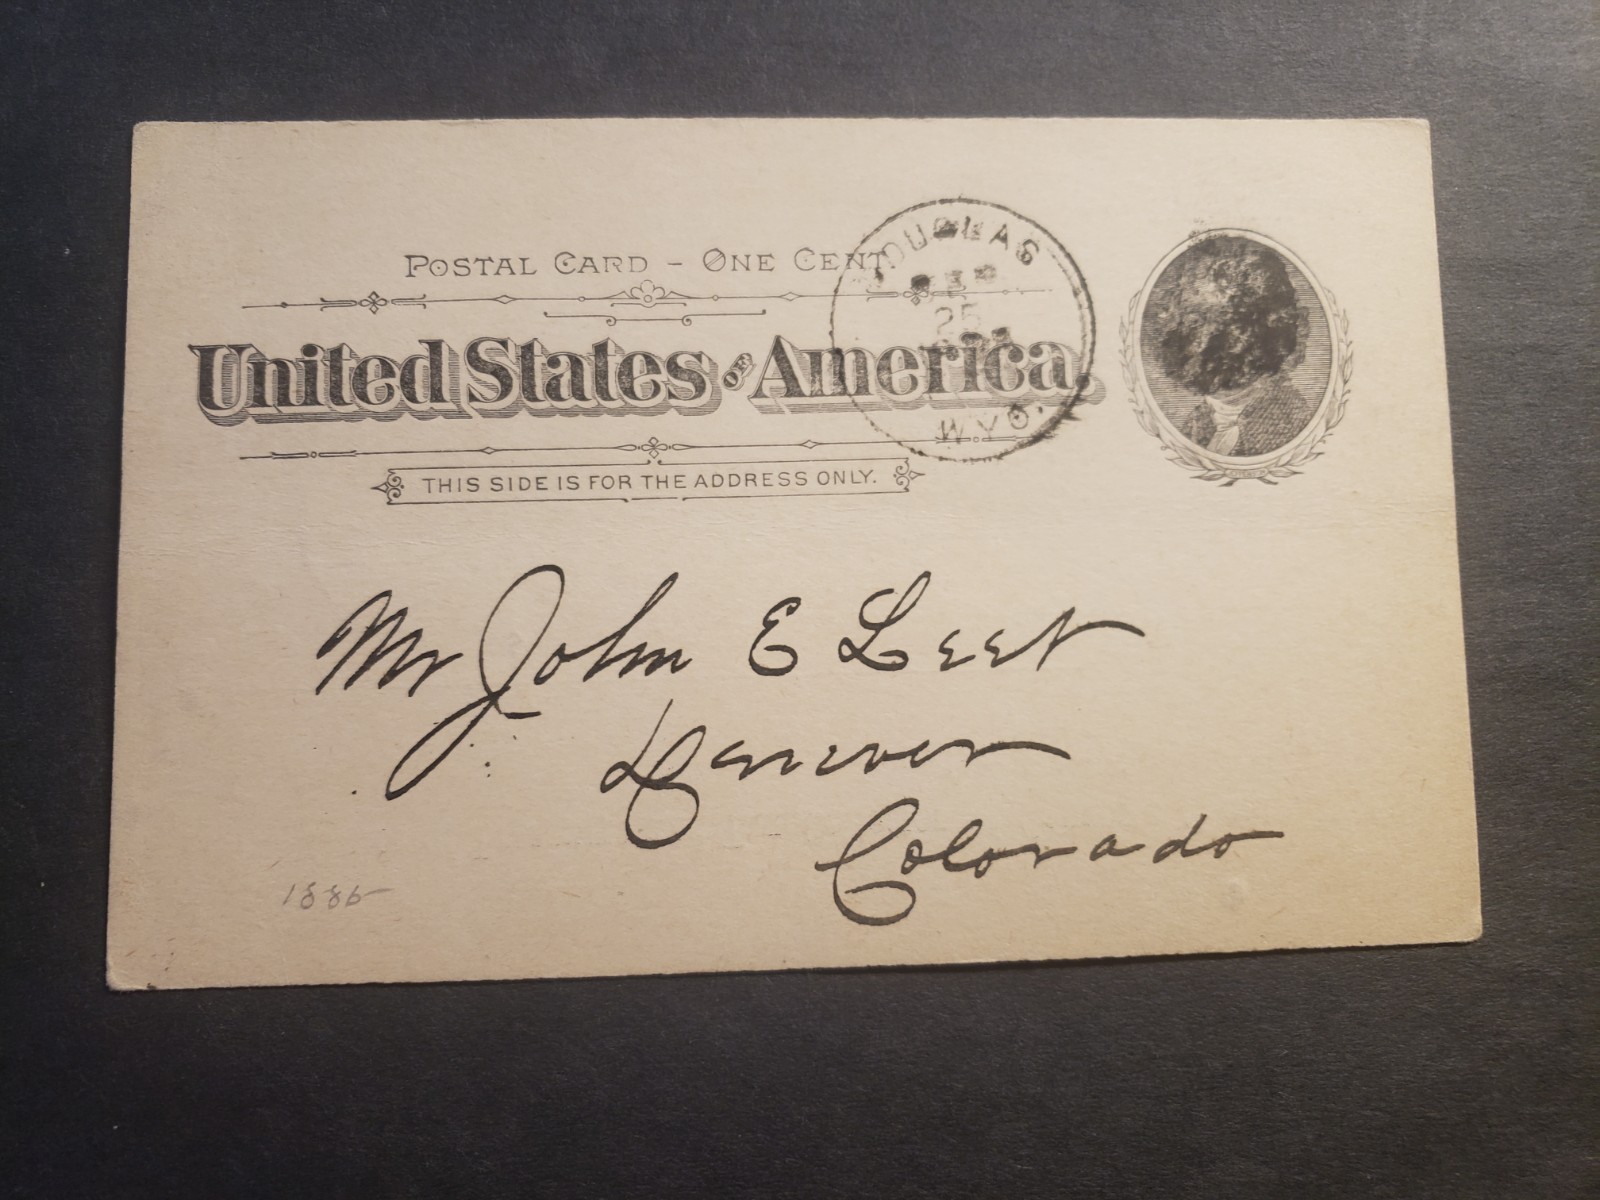 POSTAL CARD - ONE CENT.
United States OF America.
THIS SIDE IS FOR THE ADDRESS ONLY.
DOUGLAS
25
WYO.
Mr John E Leet
Denver
Colorado
1886